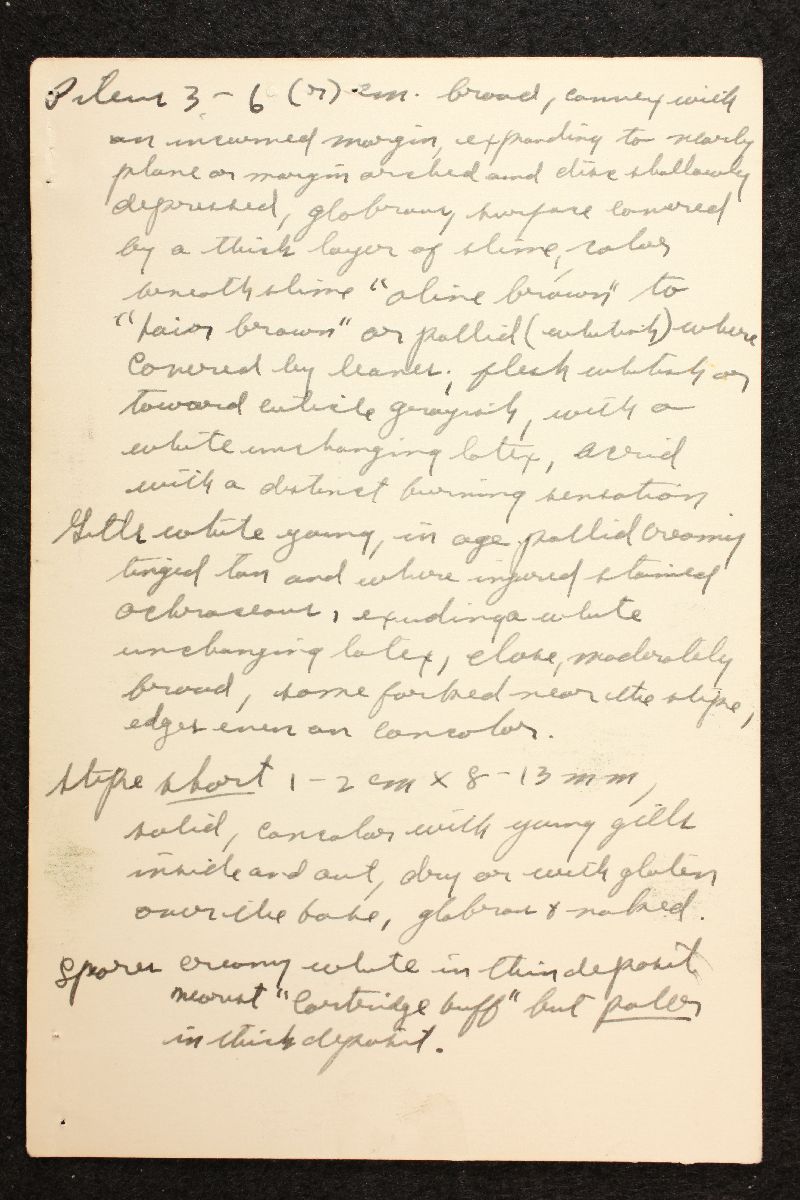 Pileus 3 – 6 (7) cm. broad, convex with
an incurved margin, expanding to nearly
plane or margin arched and disc shallowly
depressed, glabrous, surface covered
by a thick layer of slime, color
beneath slime "olive brown" to
"Saccardo's brown" or pallid (whitish) where
covered by leaves; flesh whitish or
toward cuticle grayish, with a
white unchanging latex, acrid
with a distinct burning sensation
Gills white young, in age pallid creamy
tinged tan and where injured stained
ochraceous, exuding a white
unchanging latex, close, moderately
broad, some forked near the stipe,
edges even and concolor.
Stipe short 1 – 2 cm x 8 – 13 mm,
solid, concolor with young gills
inside and out, dry or with gluten
over the base, glabrous & naked.
Spores creamy white in thin deposit
nearest "Cartridge buff" but paler
in thick deposit.